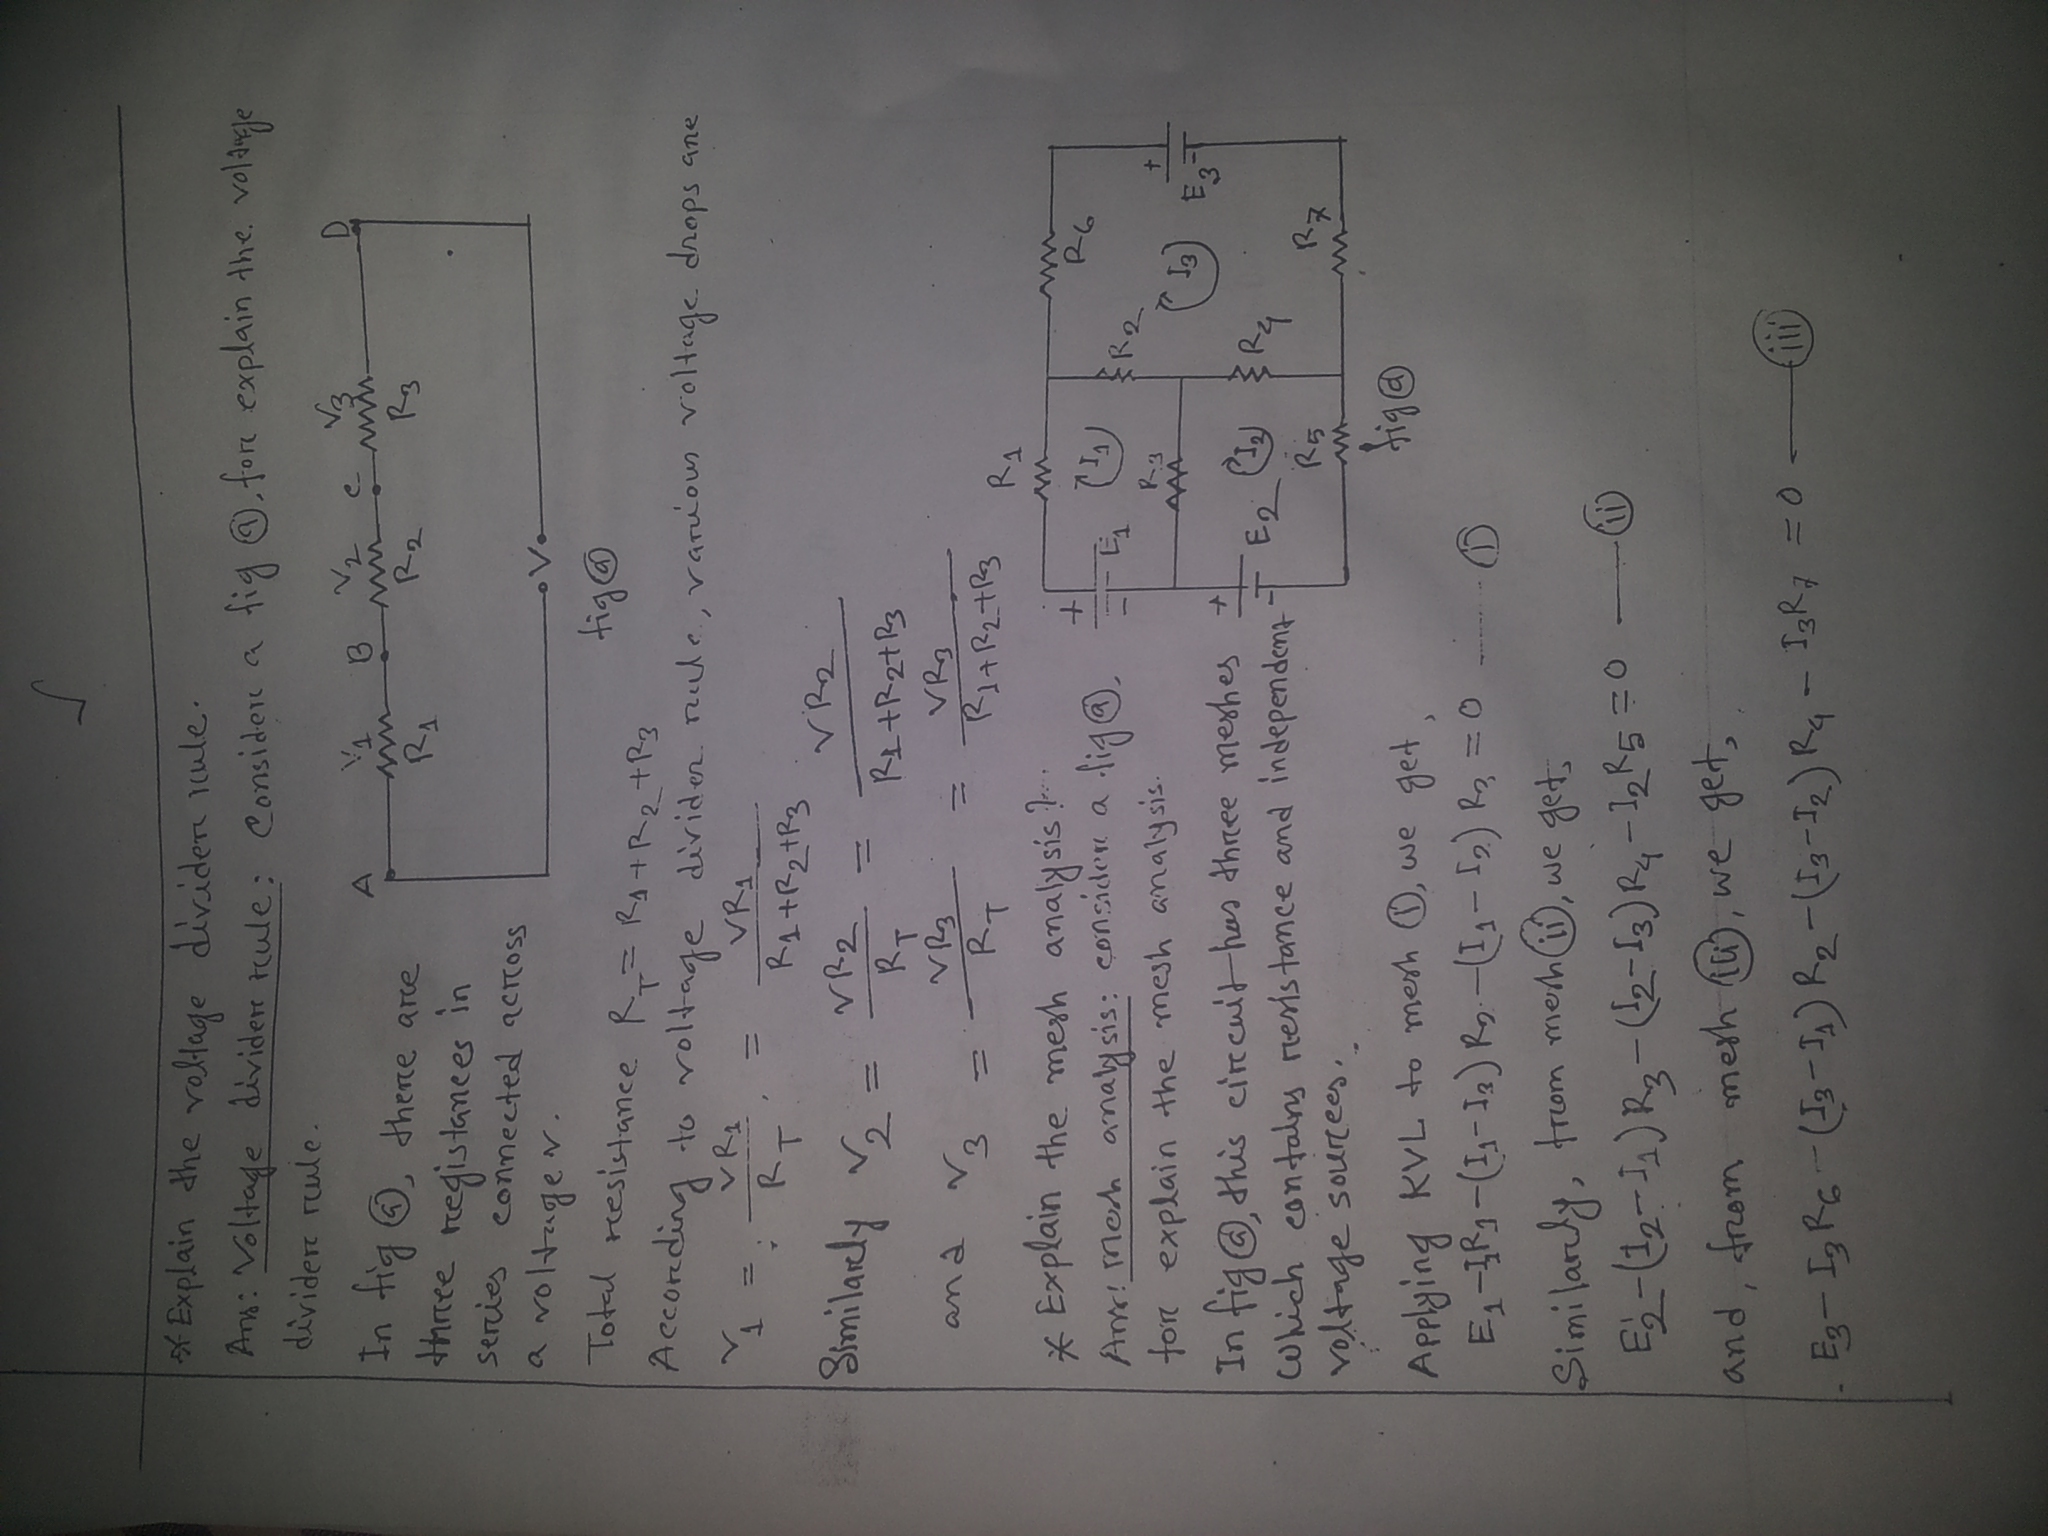 * Explain the voltage divider rule.
Ans: Voltage divider rule: Consider a fig ⓐ, for explain the voltage
divider rule.
In fig ⓐ, there are
three registances in
series connected across
a voltage v.
A V1 B V2 C V3 D
R1 R2 R3
V
fig ⓐ
Total resistance R_T = R1+R2+R3
According to voltage divider rule, various voltage drops are
V1 = VR1/R_T = VR1/(R1+R2+R3)
Similarly V2 = VR2/R_T = VR2/(R1+R2+R3)
and V3 = VR3/R_T = VR3/(R1+R2+R3)
* Explain the mesh analysis?
Ans: Mesh analysis: consider a fig ⓐ,
for explain the mesh analysis.
In fig ⓐ, this circuit has three meshes
which contains resistance and independent
voltage sources.
R1 R6
+ E1 - I1 R2
R3 I3 + E3 -
+ E2 - I2 R4
R5 R7
fig ⓐ
Applying KVL to mesh ⓘ, we get,
E1-I1R1-(I1-I3)R2-(I1-I2)R3=0 ------ ⓘ
Similarly, from mesh (ii), we get,
E2-(I2-I1)R3-(I2-I3)R4-I2R5=0 —— (ii)
and, from mesh (iii), we get,
E3-I3R6-(I3-I1)R2-(I3-I2)R4-I3R7=0 —— (iii)